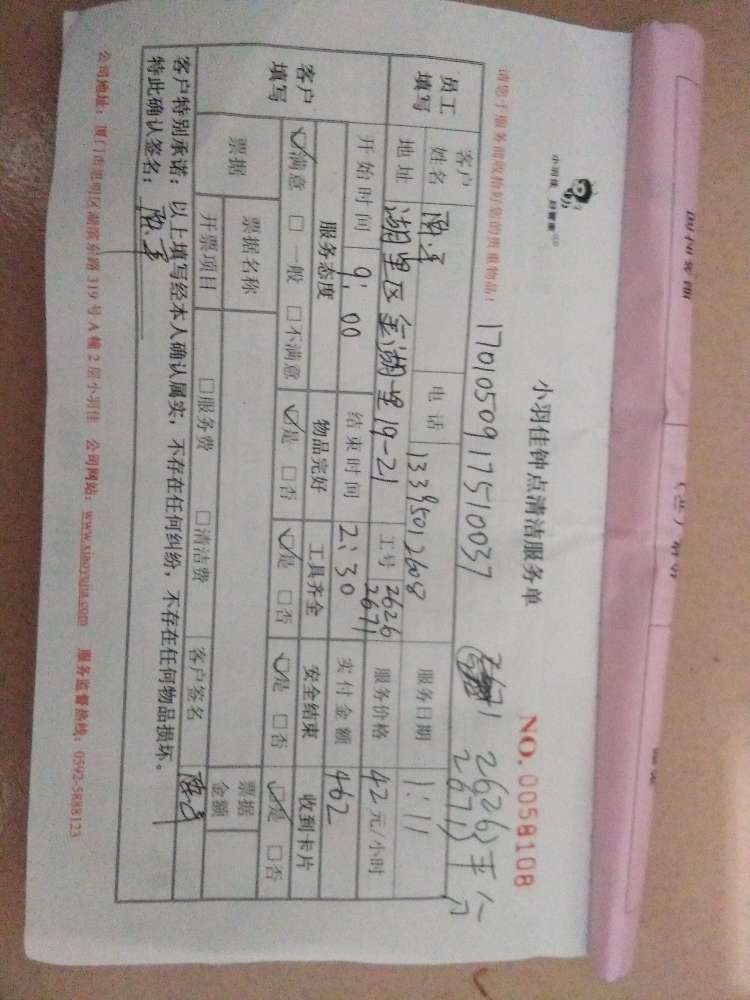 小羽佳 好管家
小羽佳钟点清洁服务单
NO. 0058108
请您于服务前收拾好您的贵重物品！
1701050917510037
2671 2626 2671 平分
员工填写
客户姓名 电话 13395012608 服务日期 1:11
地址 湖里区金湖里19-21 工号 2626 2671 服务价格 42元/小时
开始时间 9:00 结束时间 2:30 实付金额 462
客户填写
服务态度 物品完好 工具齐全 安全结束 收到卡片
☑满意 □一般 □不满意 ☑是 □否 ☑是 □否 ☑是 □否 ☑是 □否
票据 票据名称 票据金额
开票项目 □服务费 □清洁费 客户签名
客户特别承诺：以上填写经本人确认属实，不存在任何纠纷，不存在任何物品损坏。
特此确认签名：
公司地址：厦门市思明区湖滨东路319号A幢2层小羽佳 公司网站：www.xiaoyujia.com 服务监督热线：0592-5888123